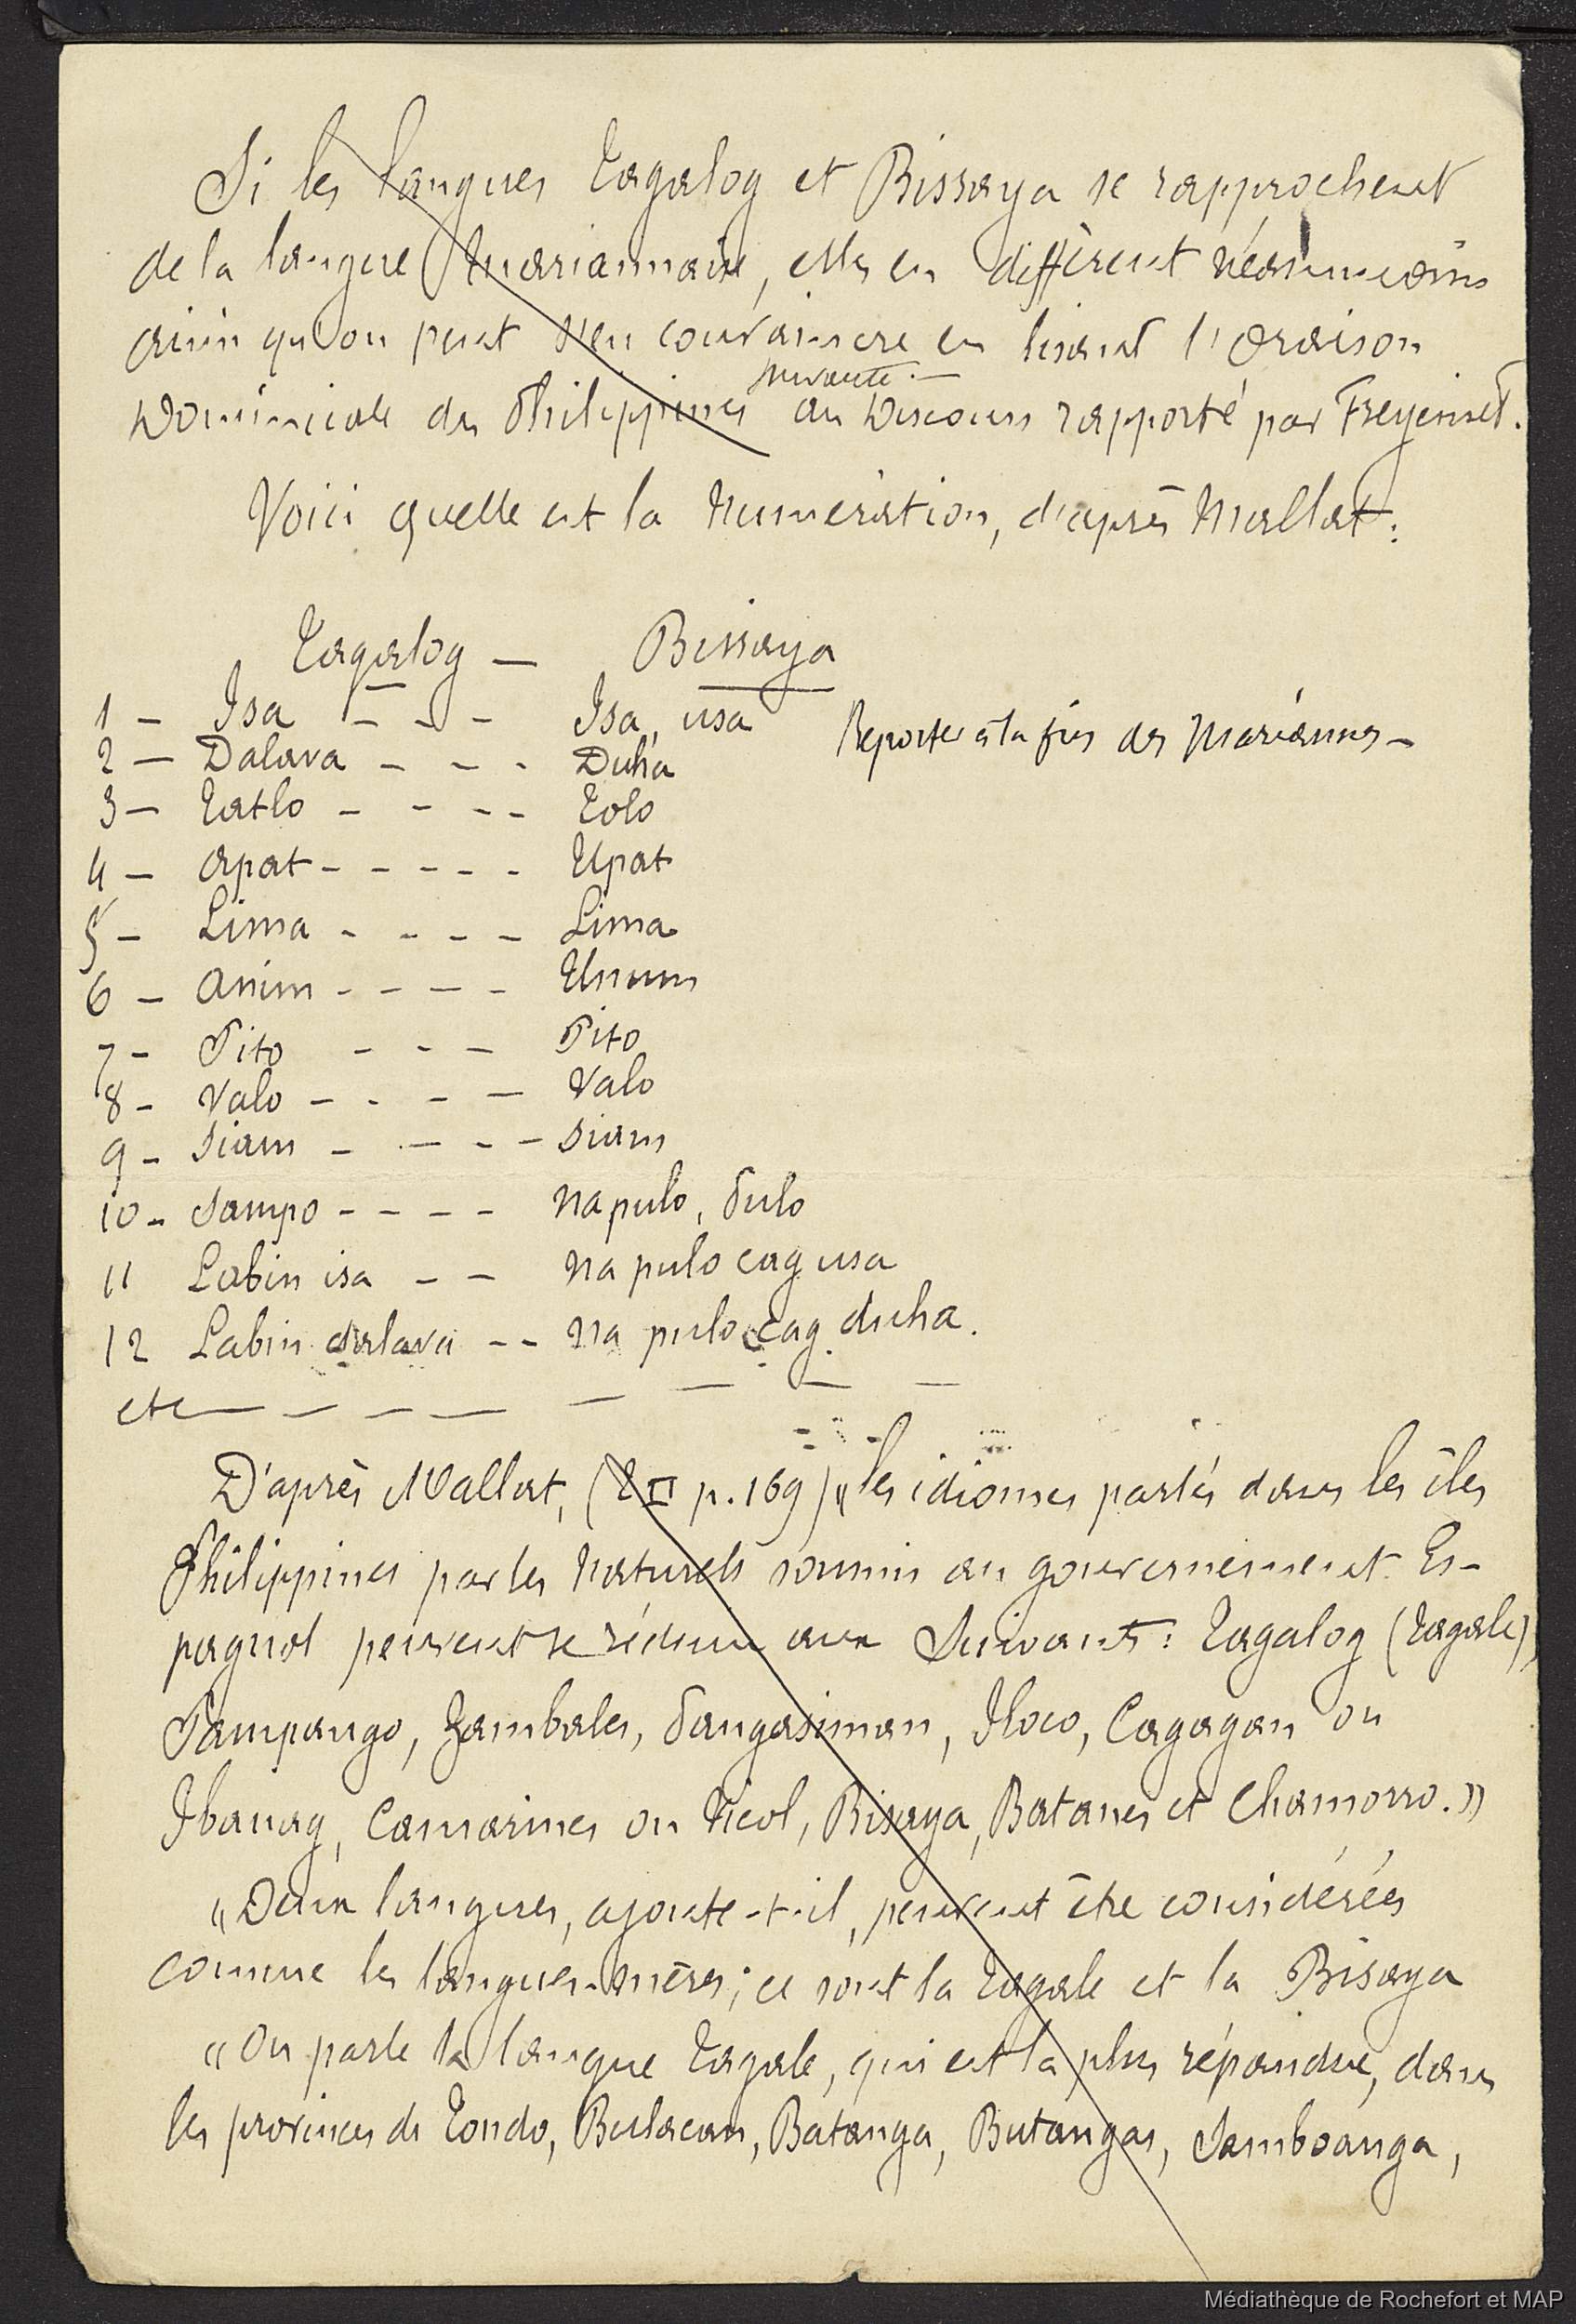 Si les langues Tagalog et Bissaya se rapprochent
de la langue mariannaise, elles en diffèrent néanmoins
ainsi qu'on peut s'en convaincre en lisant l'oraison
suivante
Dominicale des Philippines au Discours rapporté par Freycinet.
Voici quelle est la Numération, d'après Mallat:
Tagalog — Bissaya
1 — Isa - - - Isa, usa
Reporter à la fin des Mariannes —
2 — Dalava - - - Duha
3 — Tatlo - - - - Tolo
4 — apat - - - - - Upat
5 — Lima - - - - Lima
6 — anim - - - - Unum
7 - Pito - - - Pito
8 - Valo - - - - Valo
9 - Siam - - - - Siam
10 - Sampo - - - - Napulo, Pulo
11 Labin isa - - Na pulo cag usa
12 Labin dalava - - Na pulo cag duha.
etc — — — — — — — —
D'après Mallat, (T II p. 169) « les idiomes parlés dans les îles
Philippines par les Naturels soumis au gouvernement Es-
pagnol peuvent se réduire aux Suivants: Tagalog (Tagale),
Pampango, Zambales, Pangasinan, Iloco, Cagayan ou
Ibanag, Camarines ou Vicol, Bisaya, Batanes et Chamorro. »
« Deux langues, ajoute-t-il, peuvent être considérées
comme les langues-mères; ce sont la Tagale et la Bisaya
« On parle la langue Tagale, qui est la plus répandue, dans
les provinces de Tondo, Bulacan, Batanga, Butangas, Samboanga,
Médiathèque de Rochefort et MAP